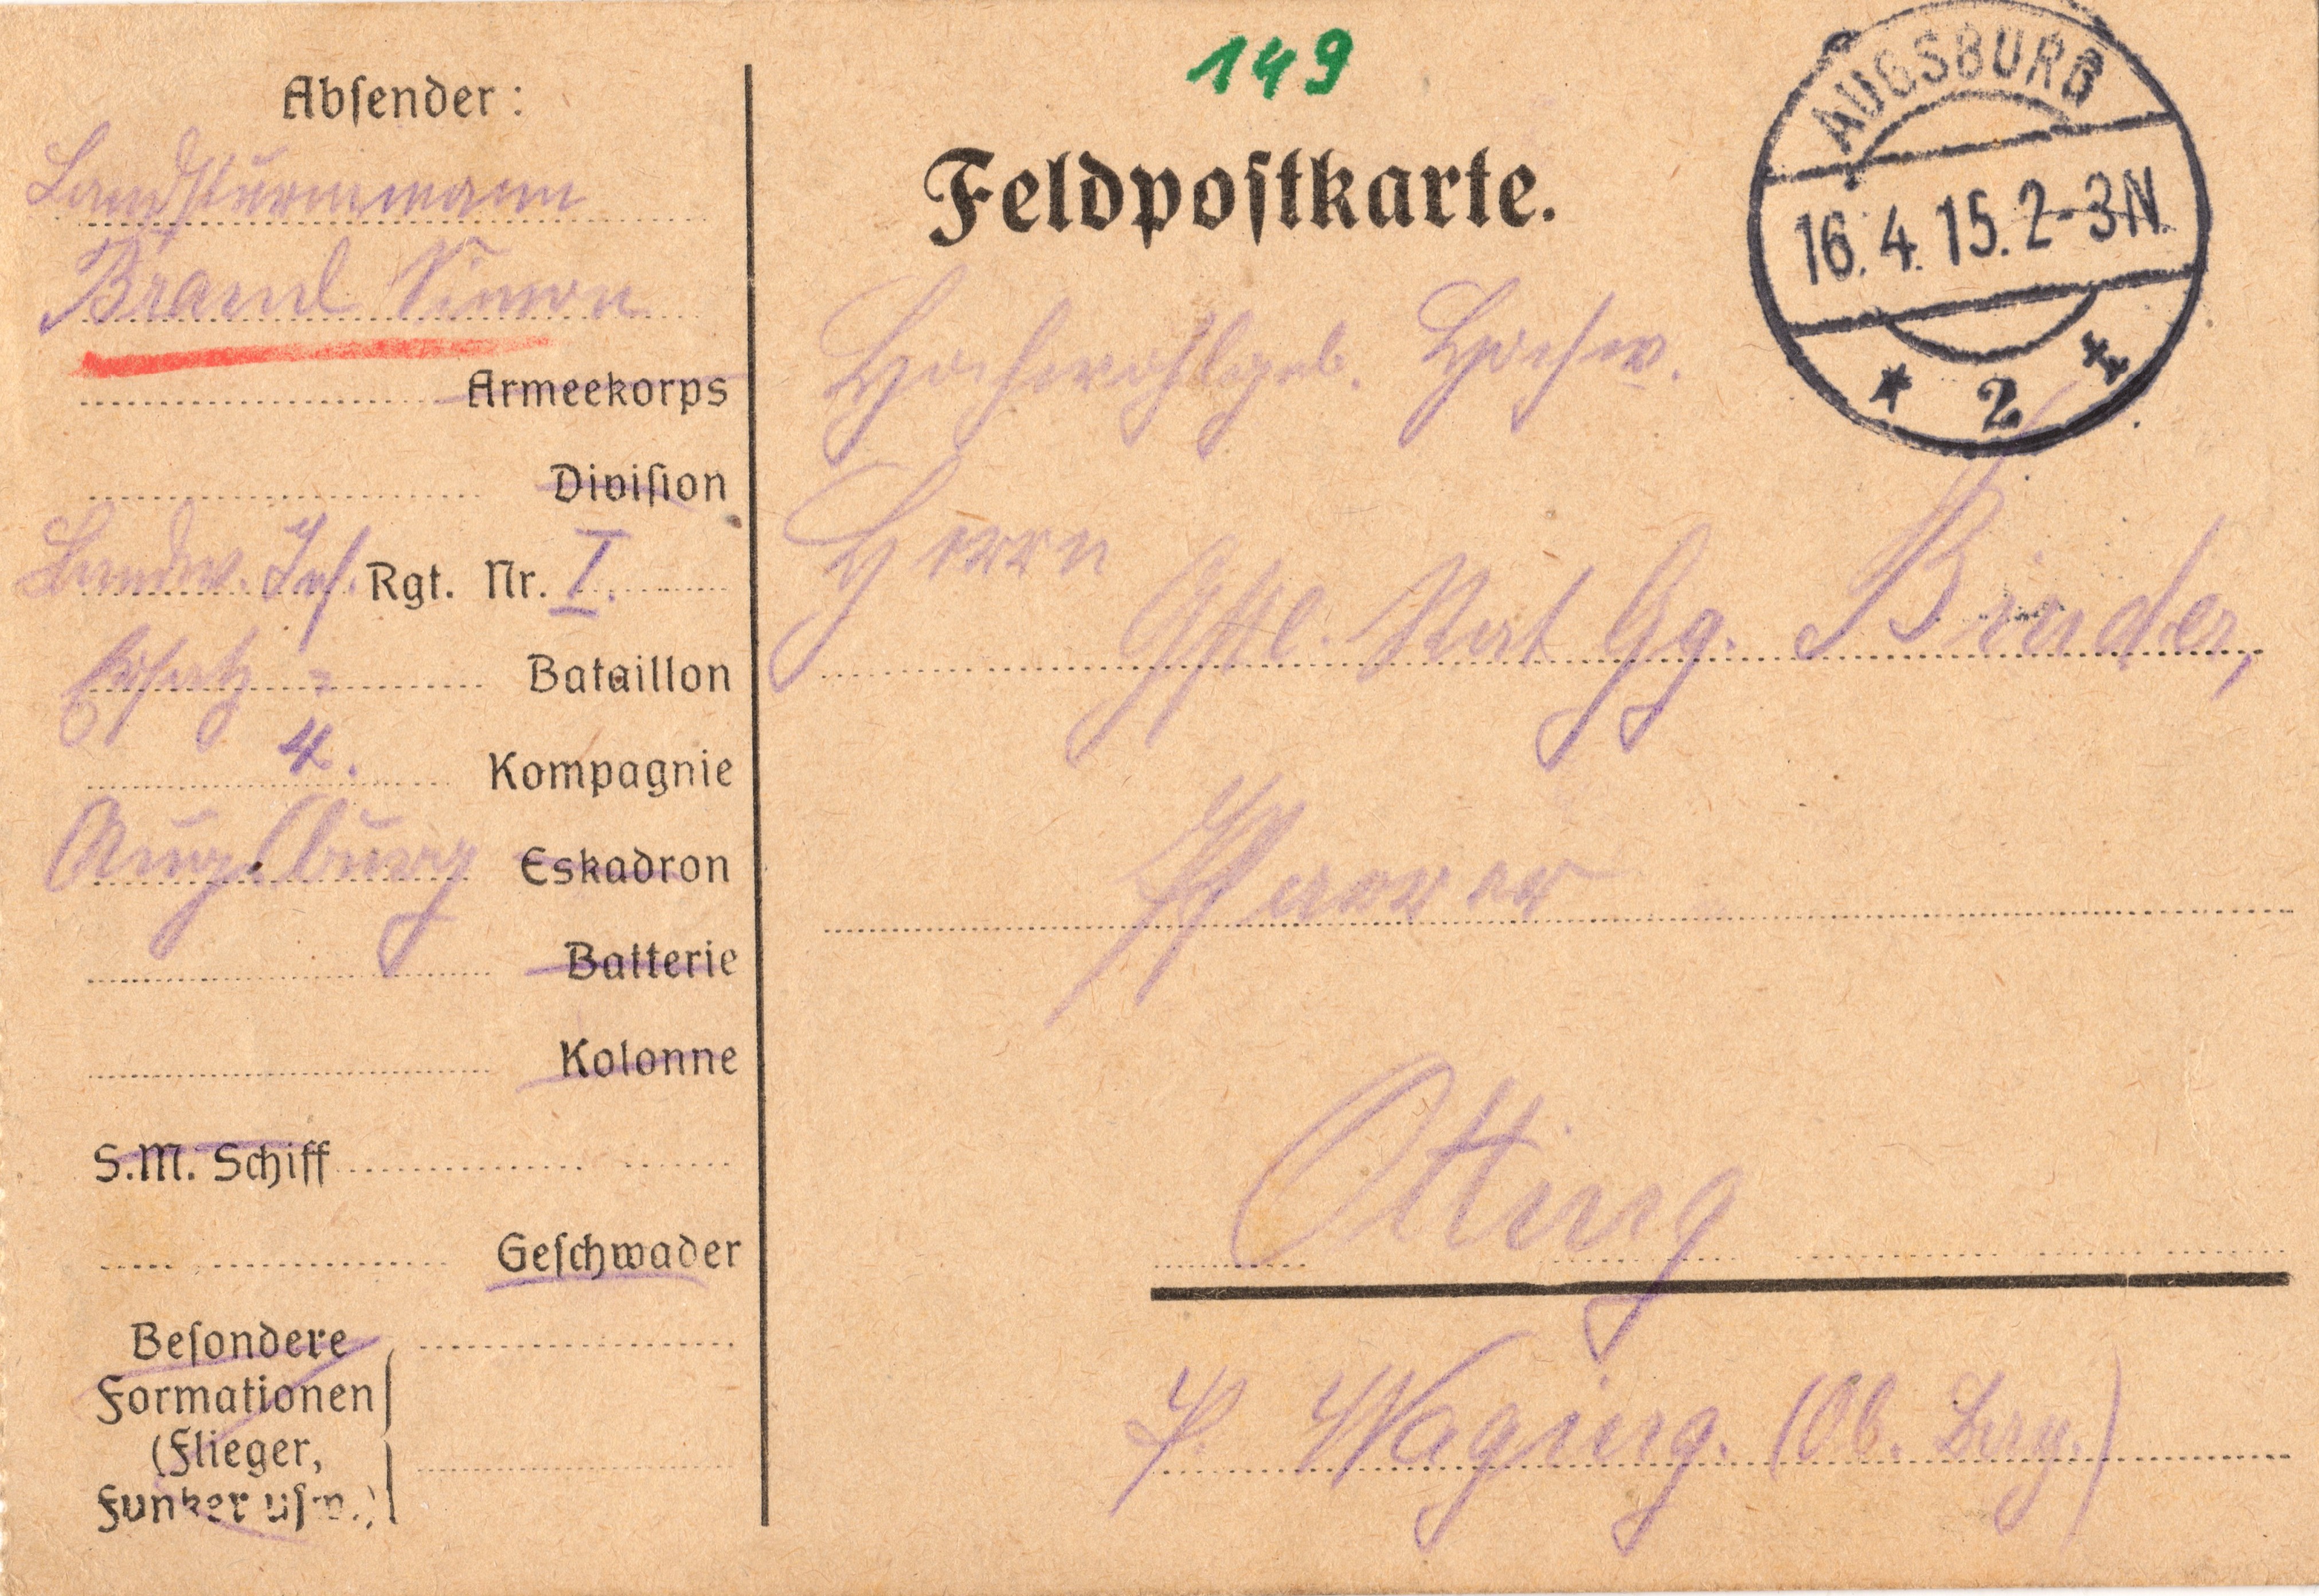 149
AUGSBURG
16.4.15.2-3N.
* 2 *
Feldpostkarte.
Absender:
Landsturmmann
Brand Simon
Armeekorps
Division
Landw. Inf. Rgt. Nr. I.
Ersatz = Bataillon
4. Kompagnie
Augsburg Eskadron
Batterie
Kolonne
S.M. Schiff
Geschwader
Besondere
Formationen
(Flieger,
Funker usw.)
Hochwohlgeb. Hochw.
Herrn
Gstl. Rat Gg. Binder,
Pfarrer
Otting
P. Waging. (Ob. Bay.)